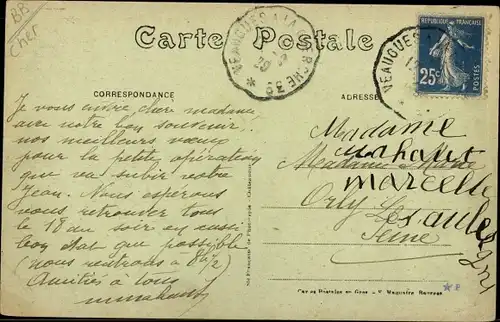 BB
Cher
Carte Postale
VEAUGUES A LA
RÉPUBLIQUE FRANÇAISE
25c
POSTES
VEAUGUES
CORRESPONDANCE
ADRESSE
Je vous envoie chère madame
avec notre bon souvenir
nos meilleurs vœux
pour la petite opération
que va subir votre
Jean. Nous espérons
vous retrouver tous
le 18 au soir en aussi
bon état que possible
(nous rentrons à 8h 1/2)
Amitiés à tous
Madame
Madame
Marcelle
Orly Les aubes
Seine